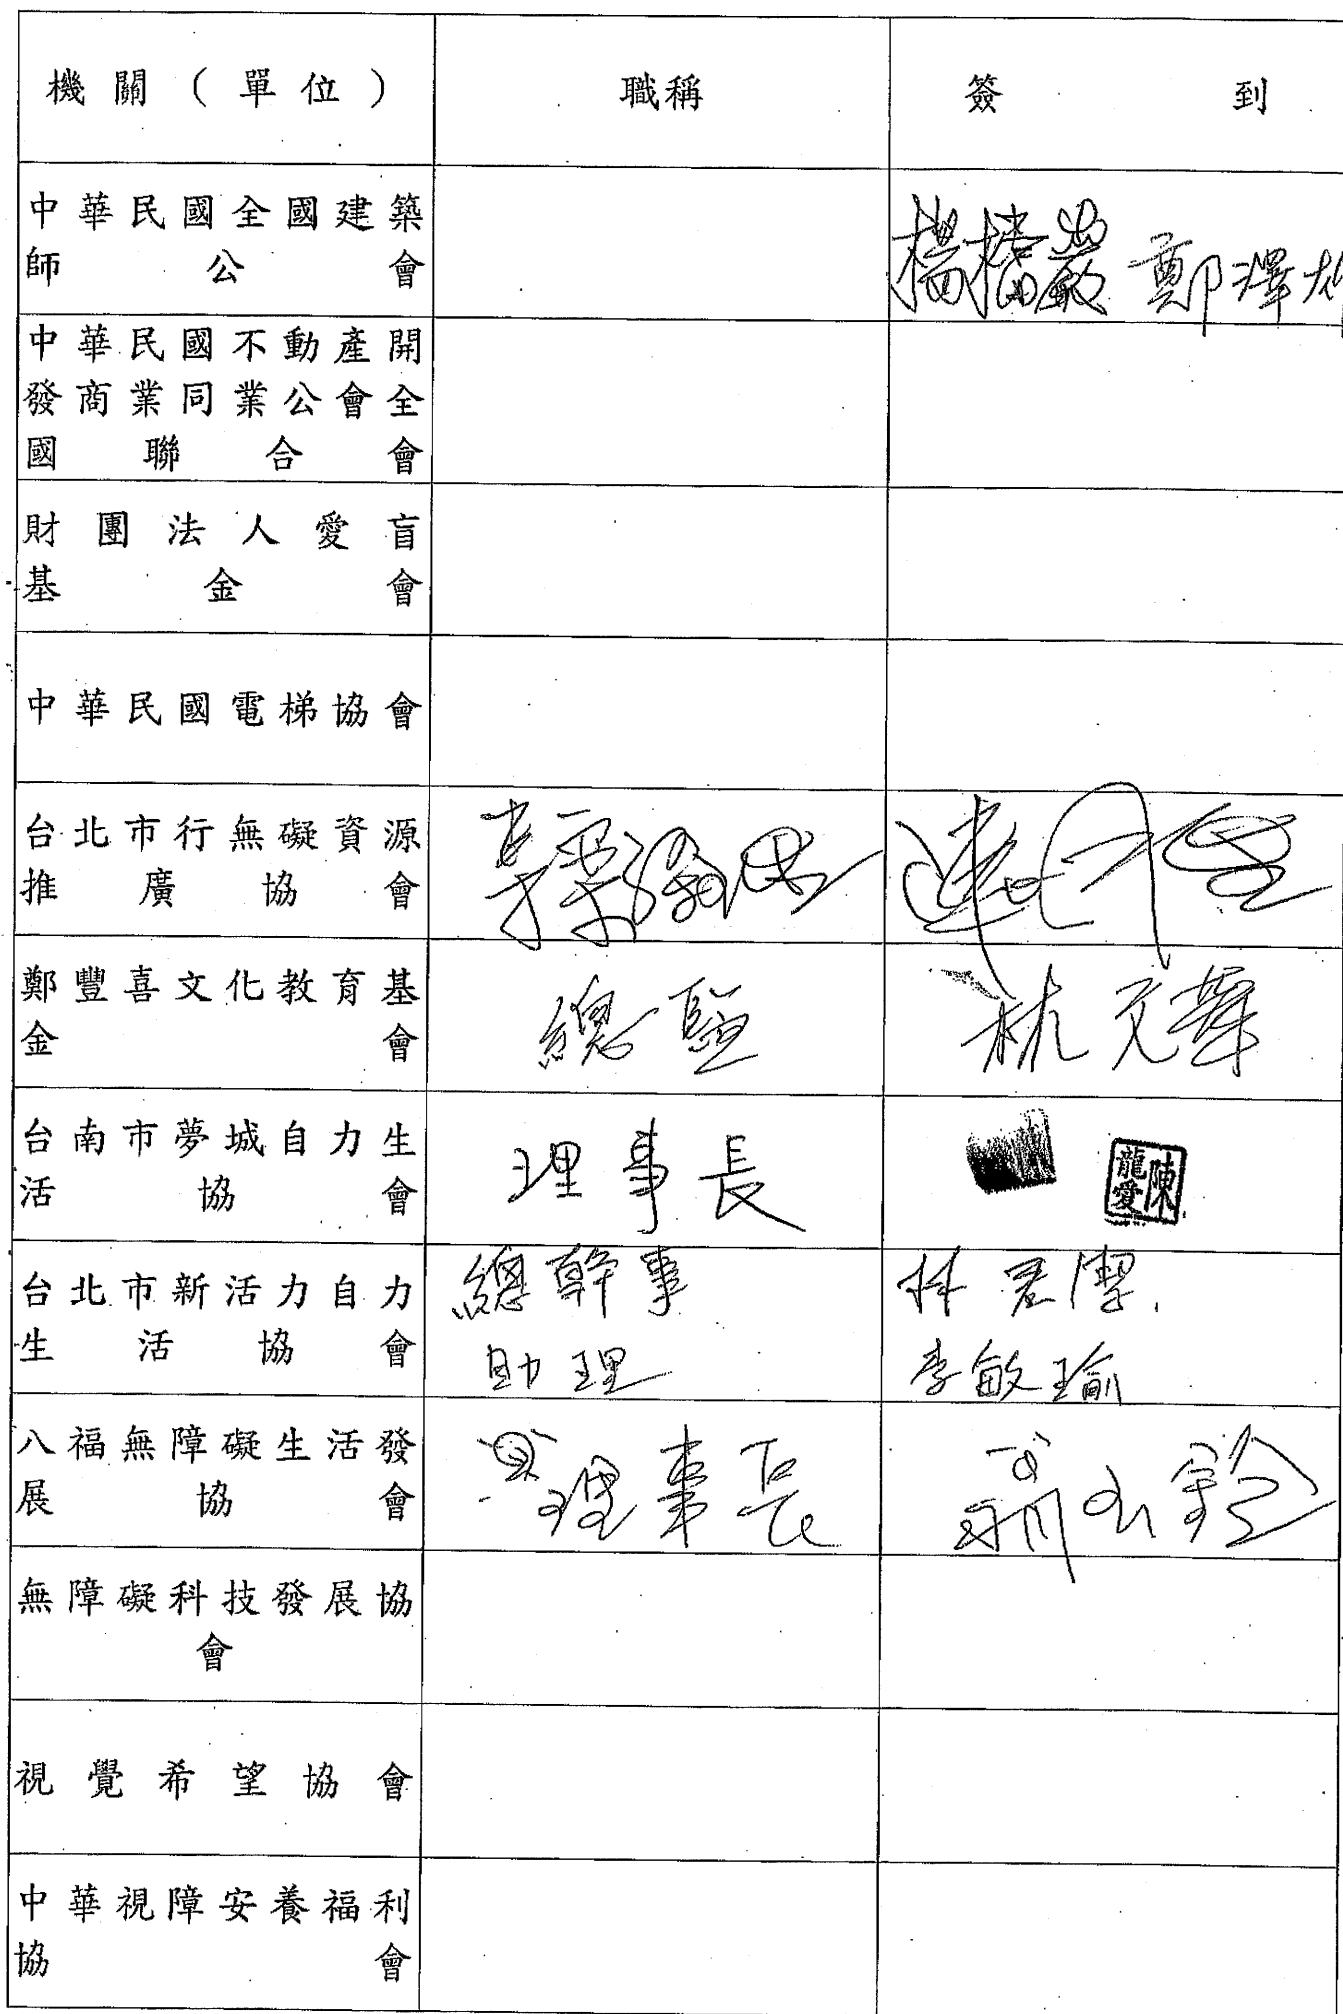 機關(單位) 職稱 簽到
中華民國全國建築
師公會
楊檔巖 鄭澤
中華民國不動產開
發商業同業公會全
國聯合會
財團法人愛盲
基金會
中華民國電梯協會
台北市行無礙資源
推廣協會
鄭豐喜文化教育基
金會
總監 林
台南市夢城自力生
活協會
理事長 陳龍愛
台北市新活力自力
生活協會
總幹事 林君潔
助理 李敏瑜
八福無障礙生活發
展協會
理事長
無障礙科技發展協
會
視覺希望協會
中華視障安養福利
協會